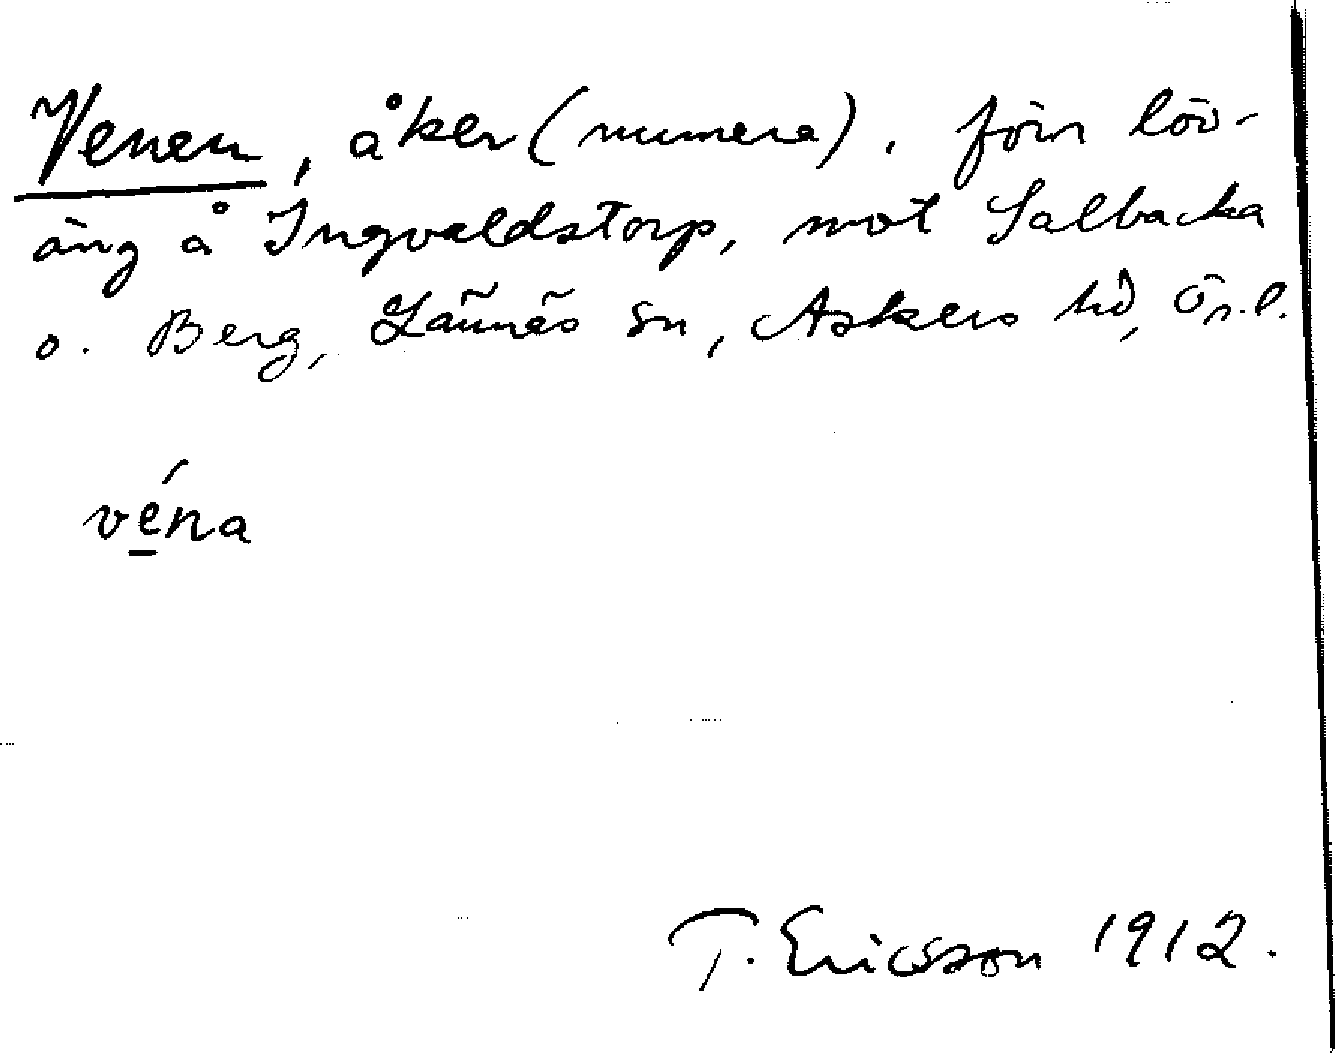 Venen, åker (numera), förr löv-
äng å Ingvaldstorp, mot Salbacka
o. Berg, Lännäs sn, Askers hd, Ör. l.
véna
T. Ericsson 1912.